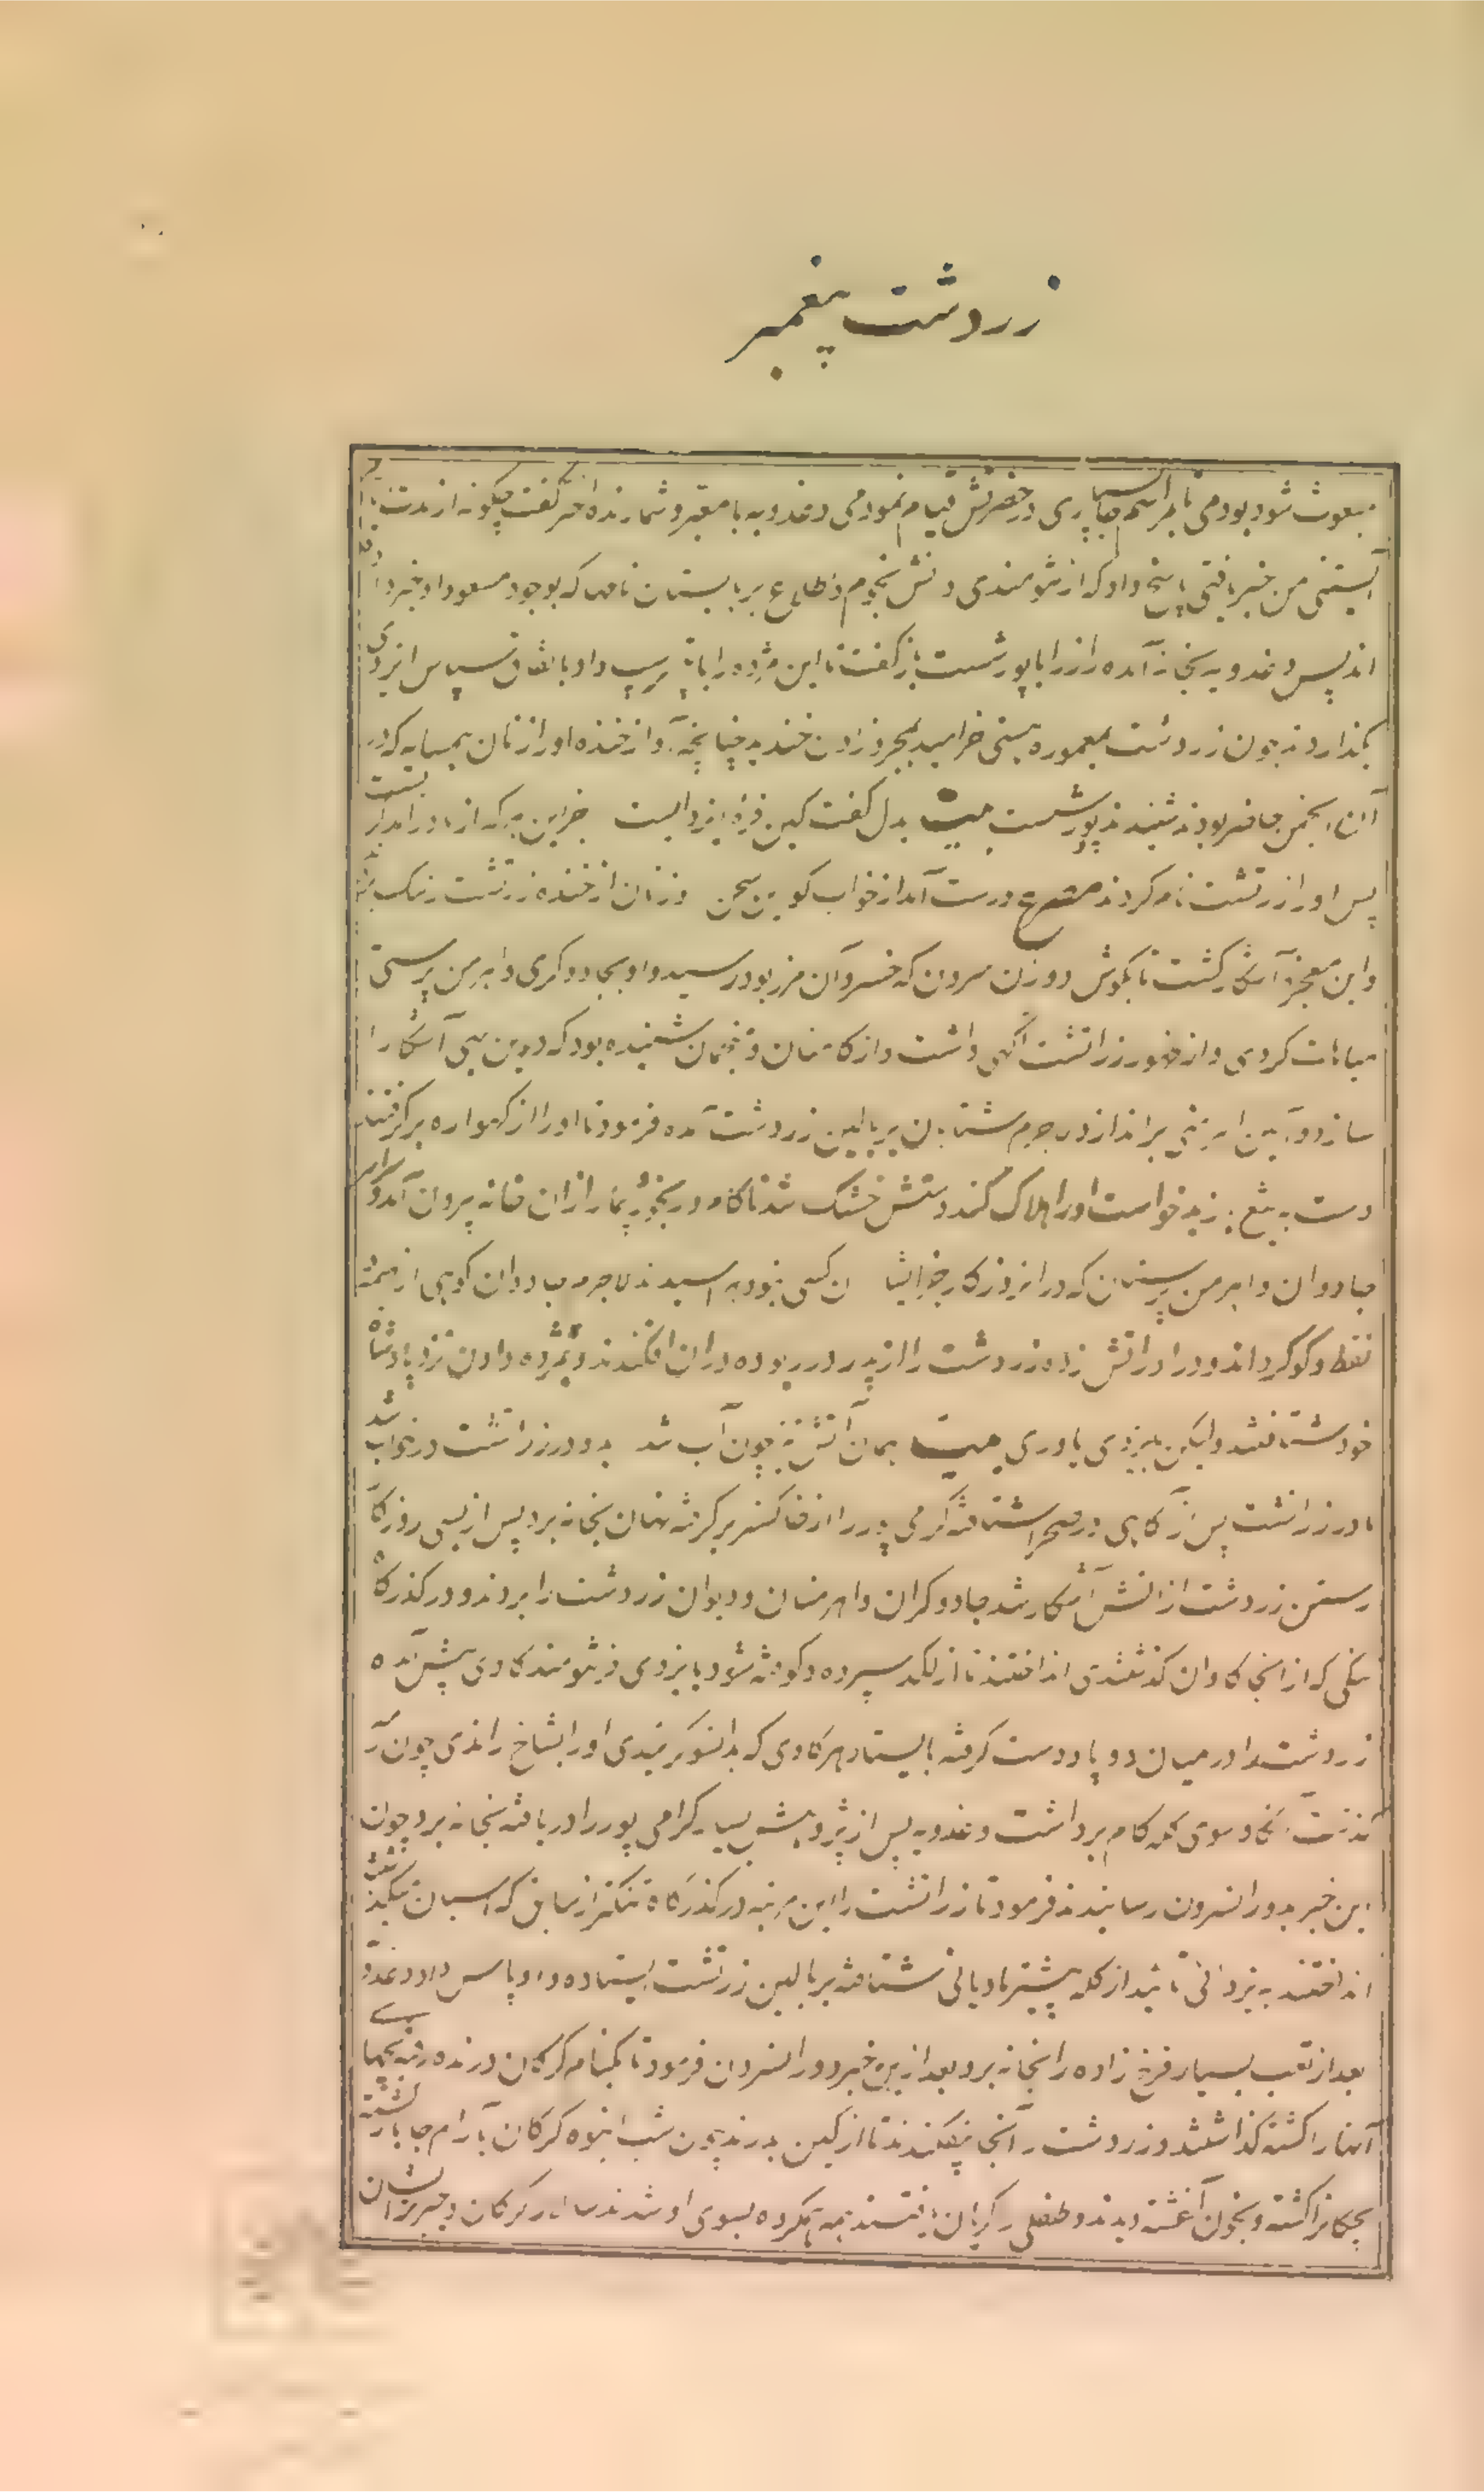 زردشت پیغمبر
مبعوث شود بودمی تا مراسم جانسپاری در حضرتش قیام نمودمی دغدویه با معبر و شمارنده اختر گفت چگونه از مدت
آبستنی من خبر یافتی پاسخ داد که از نیرومندی دانش نجوم و اطلاع بر باستان نامها که بوجود مسعود او خبر داده
اند پس دغدویه بخانه آمده راز را با پورشسب باز گفت تا این مژده را با پتیرسپ داد باتفاق سپاس ایزدی
بگذاردند چون زردشت بمعموره هستی خرامید بمجرد زادن خندید چنانچه آواز خنده او را زنان همسایه که در
آن انجمن حاضر بودند شنیدند پورشسب بیت بدل گفت کین فره ایزدیست جز این هر که از مادر آمد گریست
پس او را زرتشت نام کردند مصرع درست آمد از خواب گو این سخن و زنان از خنده زرتشت رشک بردند
و این معجزه آشکار گشت تا بگوش دوران سرون که خسرو آن مرز بود رسید و او بجادوگری و اهرمن پرستی
مباهات کردی و از ظهور زراتشت آگهی داشت و از کاهنان و منجمان شنیده بود که دین بهی آشکارا
سازد و آیین اهرمنی براندازد لاجرم شتابان ببالین زردشت آمده فرمود تا او را از گهواره برگرفتند
دست به تیغ بزد خواست او را هلاک کند دستش خشک شد ناکام و رنجور بیمار از آن خانه بیرون آمد و سراسر
جادوان و اهرمن پرستان که در آن روزگار جز ایشان کسی نبود بهراسیدند لاجرم جادوان کوهی از هیمه
نفط و گوگرد اندود را در آتش زده زردشت را از پدر در ربوده در آن افکندند و بمژده دادن نزد پادشاه
خود شتافتند ولیکن بایزدی یاوری بیت همان آتش تیز چون آب شد بدو در زراتشت در خواب شد
مادر زراتشت پس از آگاهی در صحرا شتافته گرامی پور را از خاکستر برگرفته نهان بخانه برد پس از بسی روزگار
رستن زردشت از آتش آشکار شد جادوگران و اهرمنان و دیوان زردشت را بردند و در گذرگاه
تنگی که از آنجا گاوان گذشتندی انداختند تا از لگد سپرده و کوفته شود بایزدی نیرومند گاوی پیش آمده
زردشت را در میان دو پا و دست گرفته بایستاد هر گاوی که بدانسو گرایدی او را بشاخ راندی چون گله
گذشت گاو سوی گله گام برداشت دغدویه پس از پژوهش بسیار گرامی پور را دریافته بخانه برد چون
این خبر به دورانسرون رسانیدند فرمود تا زراتشت را این مرتبه در گذرگاه تنگتر از سابق که اسپان گذشتند
انداختند به یزدانی تائید از گله پیشتر مادیانی شتافته بر بالین زرتشت ایستاده او را پاس داد دغدویه
بعد از تعب بسیار فرخ زاده را بخانه برد بعد از این خبر دورانسرون فرمود تا بکنام گرگان درنده رفته بچهای
آنها را کشته گذاشتند و زردشت را آنجا بیفکندند تا از کین بدرند چون شب انبوه گرگان بآرام جا بازگشته
بچگانرا کشته و بخون آغشته دیدند و طفلی را گریان یافتند همه همگروه بسوی او شدند سالار گرگان و چیرتر ایشان